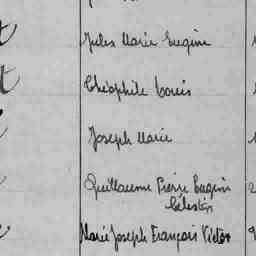 Jules Marie Eugène
Théophile Louis
Joseph Marie
Guillaume Pierre Eugène
Célestin
Marie Joseph François Victor